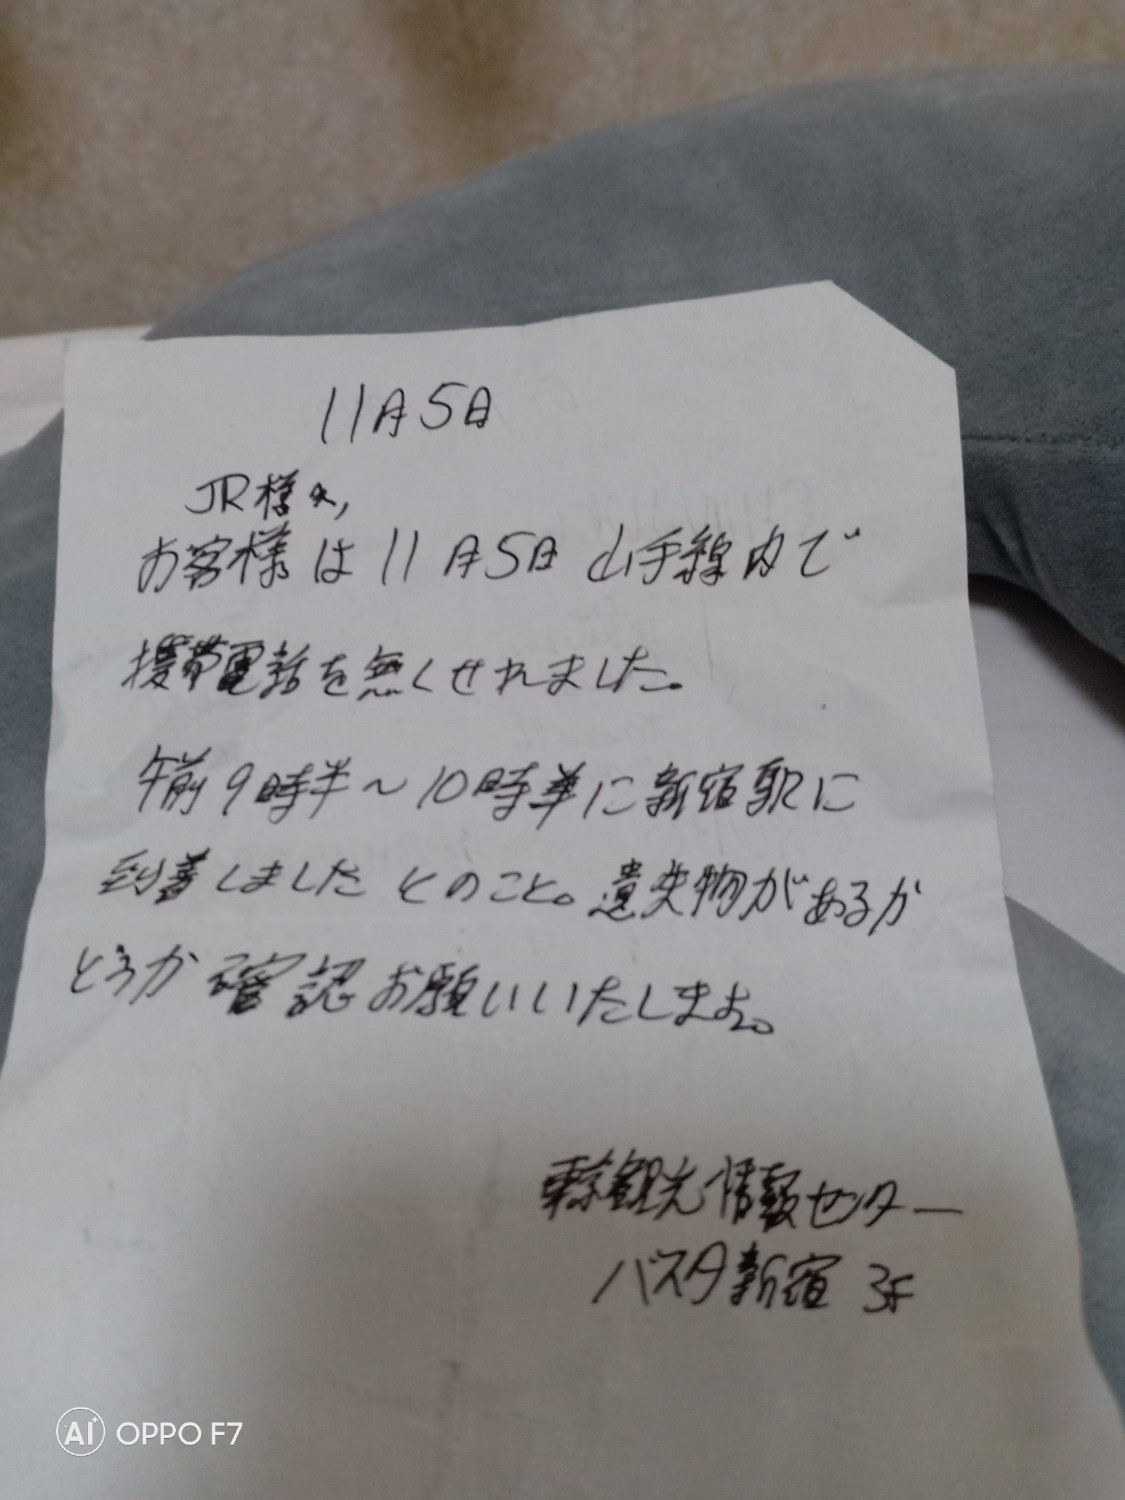 11月5日
JR様へ,
お客様は11月5日 山手線内で
携帯電話を無くせれました。
午前9時半～10時半に新宿駅に
到着しましたとのこと。遺失物があるか
どうか確認お願いいたします。
東京観光情報センター
バスタ新宿 3F
AI OPPO F7